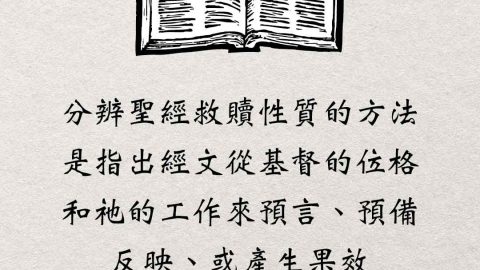 分辨聖經救贖性質的方法
是指出經文從基督的位格
和祂的工作來預言、預備
反映、或產生果效